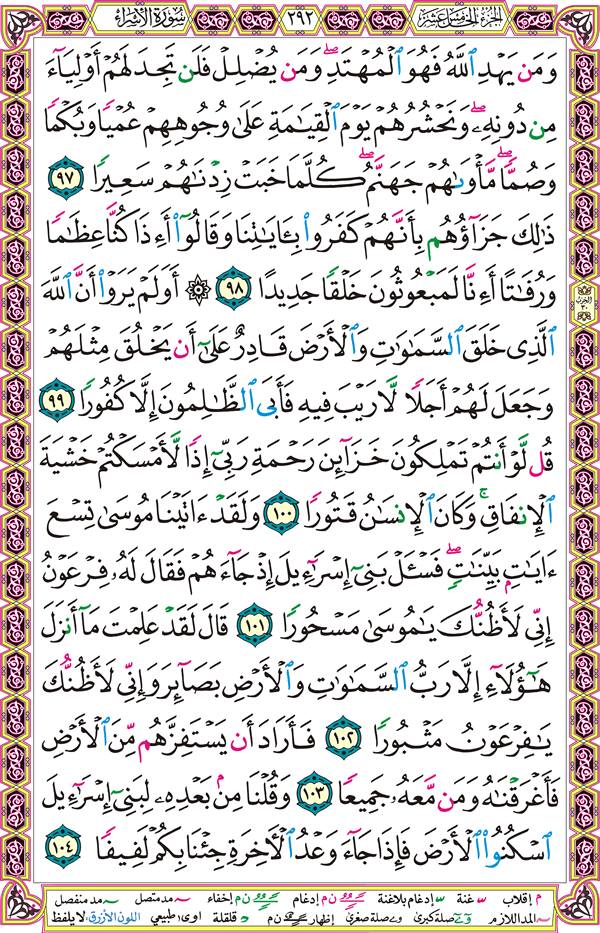 الجزء الخامس عشر ٢٩٢ سورة الإسراء
وَمَن يَهْدِ ٱللَّهُ فَهُوَ ٱلْمُهْتَدِ ۖ وَمَن يُضْلِلْ فَلَن تَجِدَ لَهُمْ أَوْلِيَآءَ
مِن دُونِهِۦ ۖ وَنَحْشُرُهُمْ يَوْمَ ٱلْقِيَٰمَةِ عَلَىٰ وُجُوهِهِمْ عُمْيًا وَبُكْمًا
وَصُمًّا ۖ مَّأْوَىٰهُمْ جَهَنَّمُ ۖ كُلَّمَا خَبَتْ زِدْنَٰهُمْ سَعِيرًا ٩٧
ذَٰلِكَ جَزَآؤُهُم بِأَنَّهُمْ كَفَرُوا۟ بِـَٔايَٰتِنَا وَقَالُوٓا۟ أَءِذَا كُنَّا عِظَٰمًا
وَرُفَٰتًا أَءِنَّا لَمَبْعُوثُونَ خَلْقًا جَدِيدًا ٩٨ ۞ أَوَلَمْ يَرَوْا۟ أَنَّ ٱللَّهَ
ٱلَّذِى خَلَقَ ٱلسَّمَٰوَٰتِ وَٱلْأَرْضَ قَادِرٌ عَلَىٰٓ أَن يَخْلُقَ مِثْلَهُمْ
وَجَعَلَ لَهُمْ أَجَلًا لَّا رَيْبَ فِيهِ فَأَبَى ٱلظَّٰلِمُونَ إِلَّا كُفُورًا ٩٩
قُل لَّوْ أَنتُمْ تَمْلِكُونَ خَزَآئِنَ رَحْمَةِ رَبِّىٓ إِذًا لَّأَمْسَكْتُمْ خَشْيَةَ
ٱلْإِنفَاقِ ۚ وَكَانَ ٱلْإِنسَٰنُ قَتُورًا ١٠٠ وَلَقَدْ ءَاتَيْنَا مُوسَىٰ تِسْعَ
ءَايَٰتٍۭ بَيِّنَٰتٍ ۖ فَسْـَٔلْ بَنِىٓ إِسْرَٰٓءِيلَ إِذْ جَآءَهُمْ فَقَالَ لَهُۥ فِرْعَوْنُ
إِنِّى لَأَظُنُّكَ يَٰمُوسَىٰ مَسْحُورًا ١٠١ قَالَ لَقَدْ عَلِمْتَ مَآ أَنزَلَ
هَٰٓؤُلَآءِ إِلَّا رَبُّ ٱلسَّمَٰوَٰتِ وَٱلْأَرْضِ بَصَآئِرَ وَإِنِّى لَأَظُنُّكَ
يَٰفِرْعَوْنُ مَثْبُورًا ١٠٢ فَأَرَادَ أَن يَسْتَفِزَّهُم مِّنَ ٱلْأَرْضِ
فَأَغْرَقْنَٰهُ وَمَن مَّعَهُۥ جَمِيعًا ١٠٣ وَقُلْنَا مِنۢ بَعْدِهِۦ لِبَنِىٓ إِسْرَٰٓءِيلَ
ٱسْكُنُوا۟ ٱلْأَرْضَ فَإِذَا جَآءَ وَعْدُ ٱلْءَاخِرَةِ جِئْنَا بِكُمْ لَفِيفًا ١٠٤
الحزب ٣٠
م إقلاب غنة إدغام بلاغنة ن م إدغام ن م إخفاء مد متصل مد منفصل
المد اللازم صلة كبرى صلة صغرى إظهار ن م قلقلة اوى طبيعي اللون الأزرق لا يلفظ